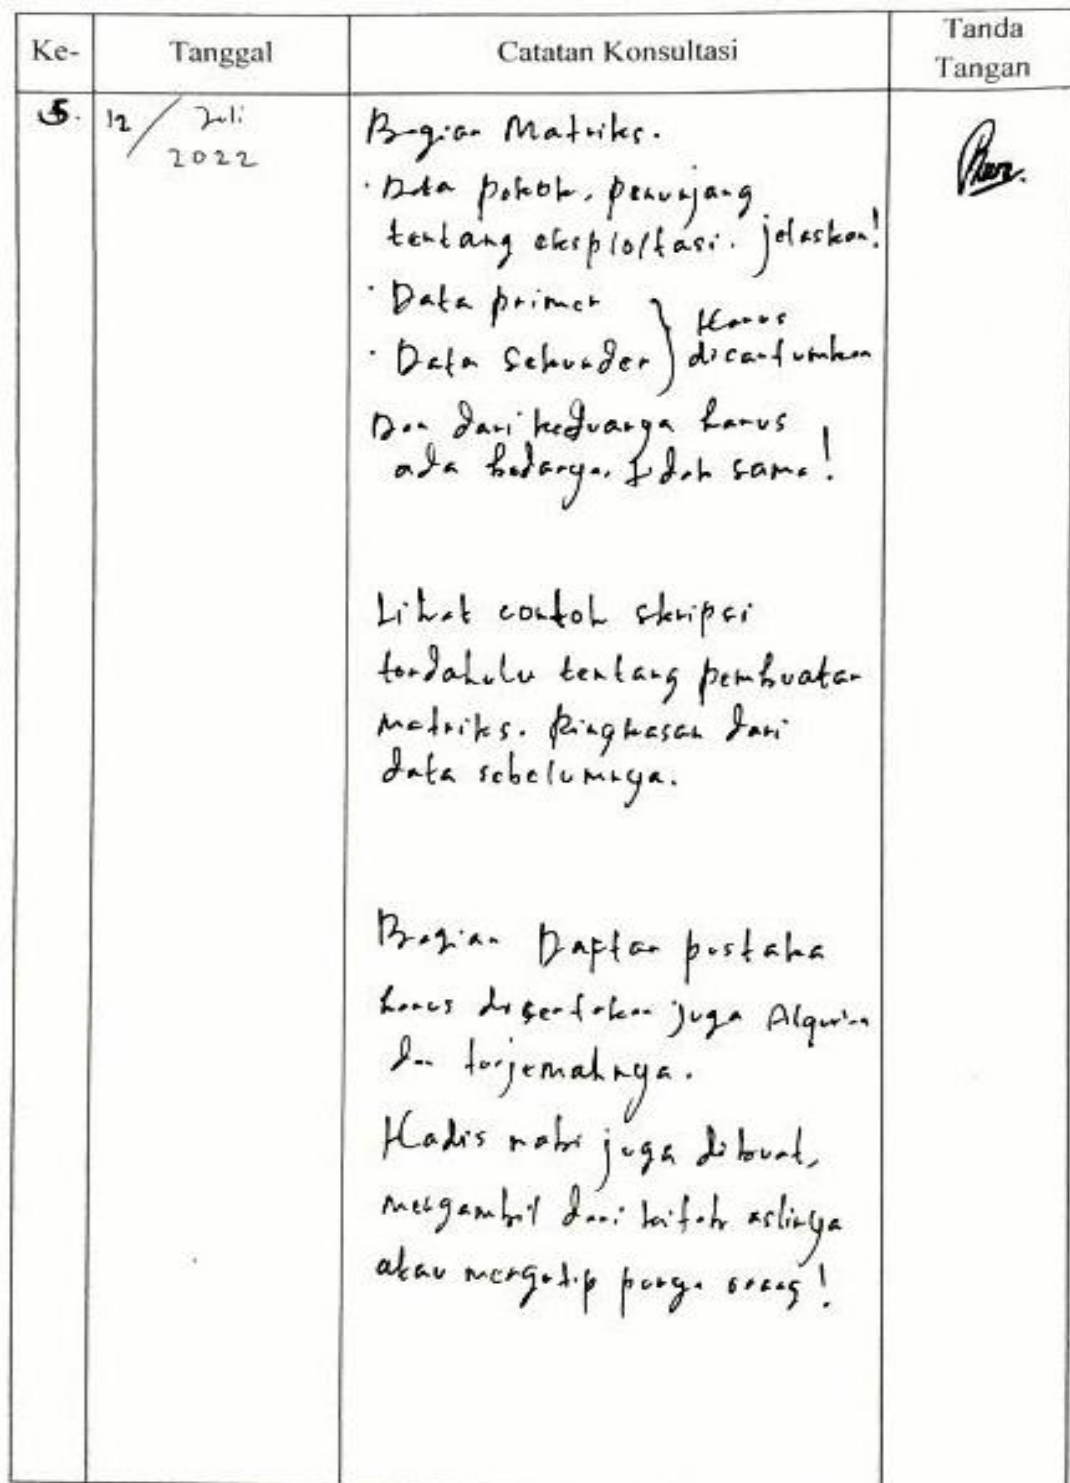 Ke- Tanggal Catatan Konsultasi Tanda Tangan
5. 12/Juli 2022
Bagian Matriks.
· Data pokok, penunjang
tentang eksploitasi. jelaskan!
· Data primer
· Data Sekunder } Harus dicantumkan
Dan dari keduanya harus
ada bedanya. Tidak sama!
Lihat contoh skripsi
terdahulu tentang pembuatan
matriks. Ringkasan dari
data sebelumnya.
Bagian Daftar pustaka
harus disertakan juga Alqur'an
dan terjemahnya.
Hadis nabi juga dibuat,
mengambil dari kitab aslinya
atau mengutip punya orang!